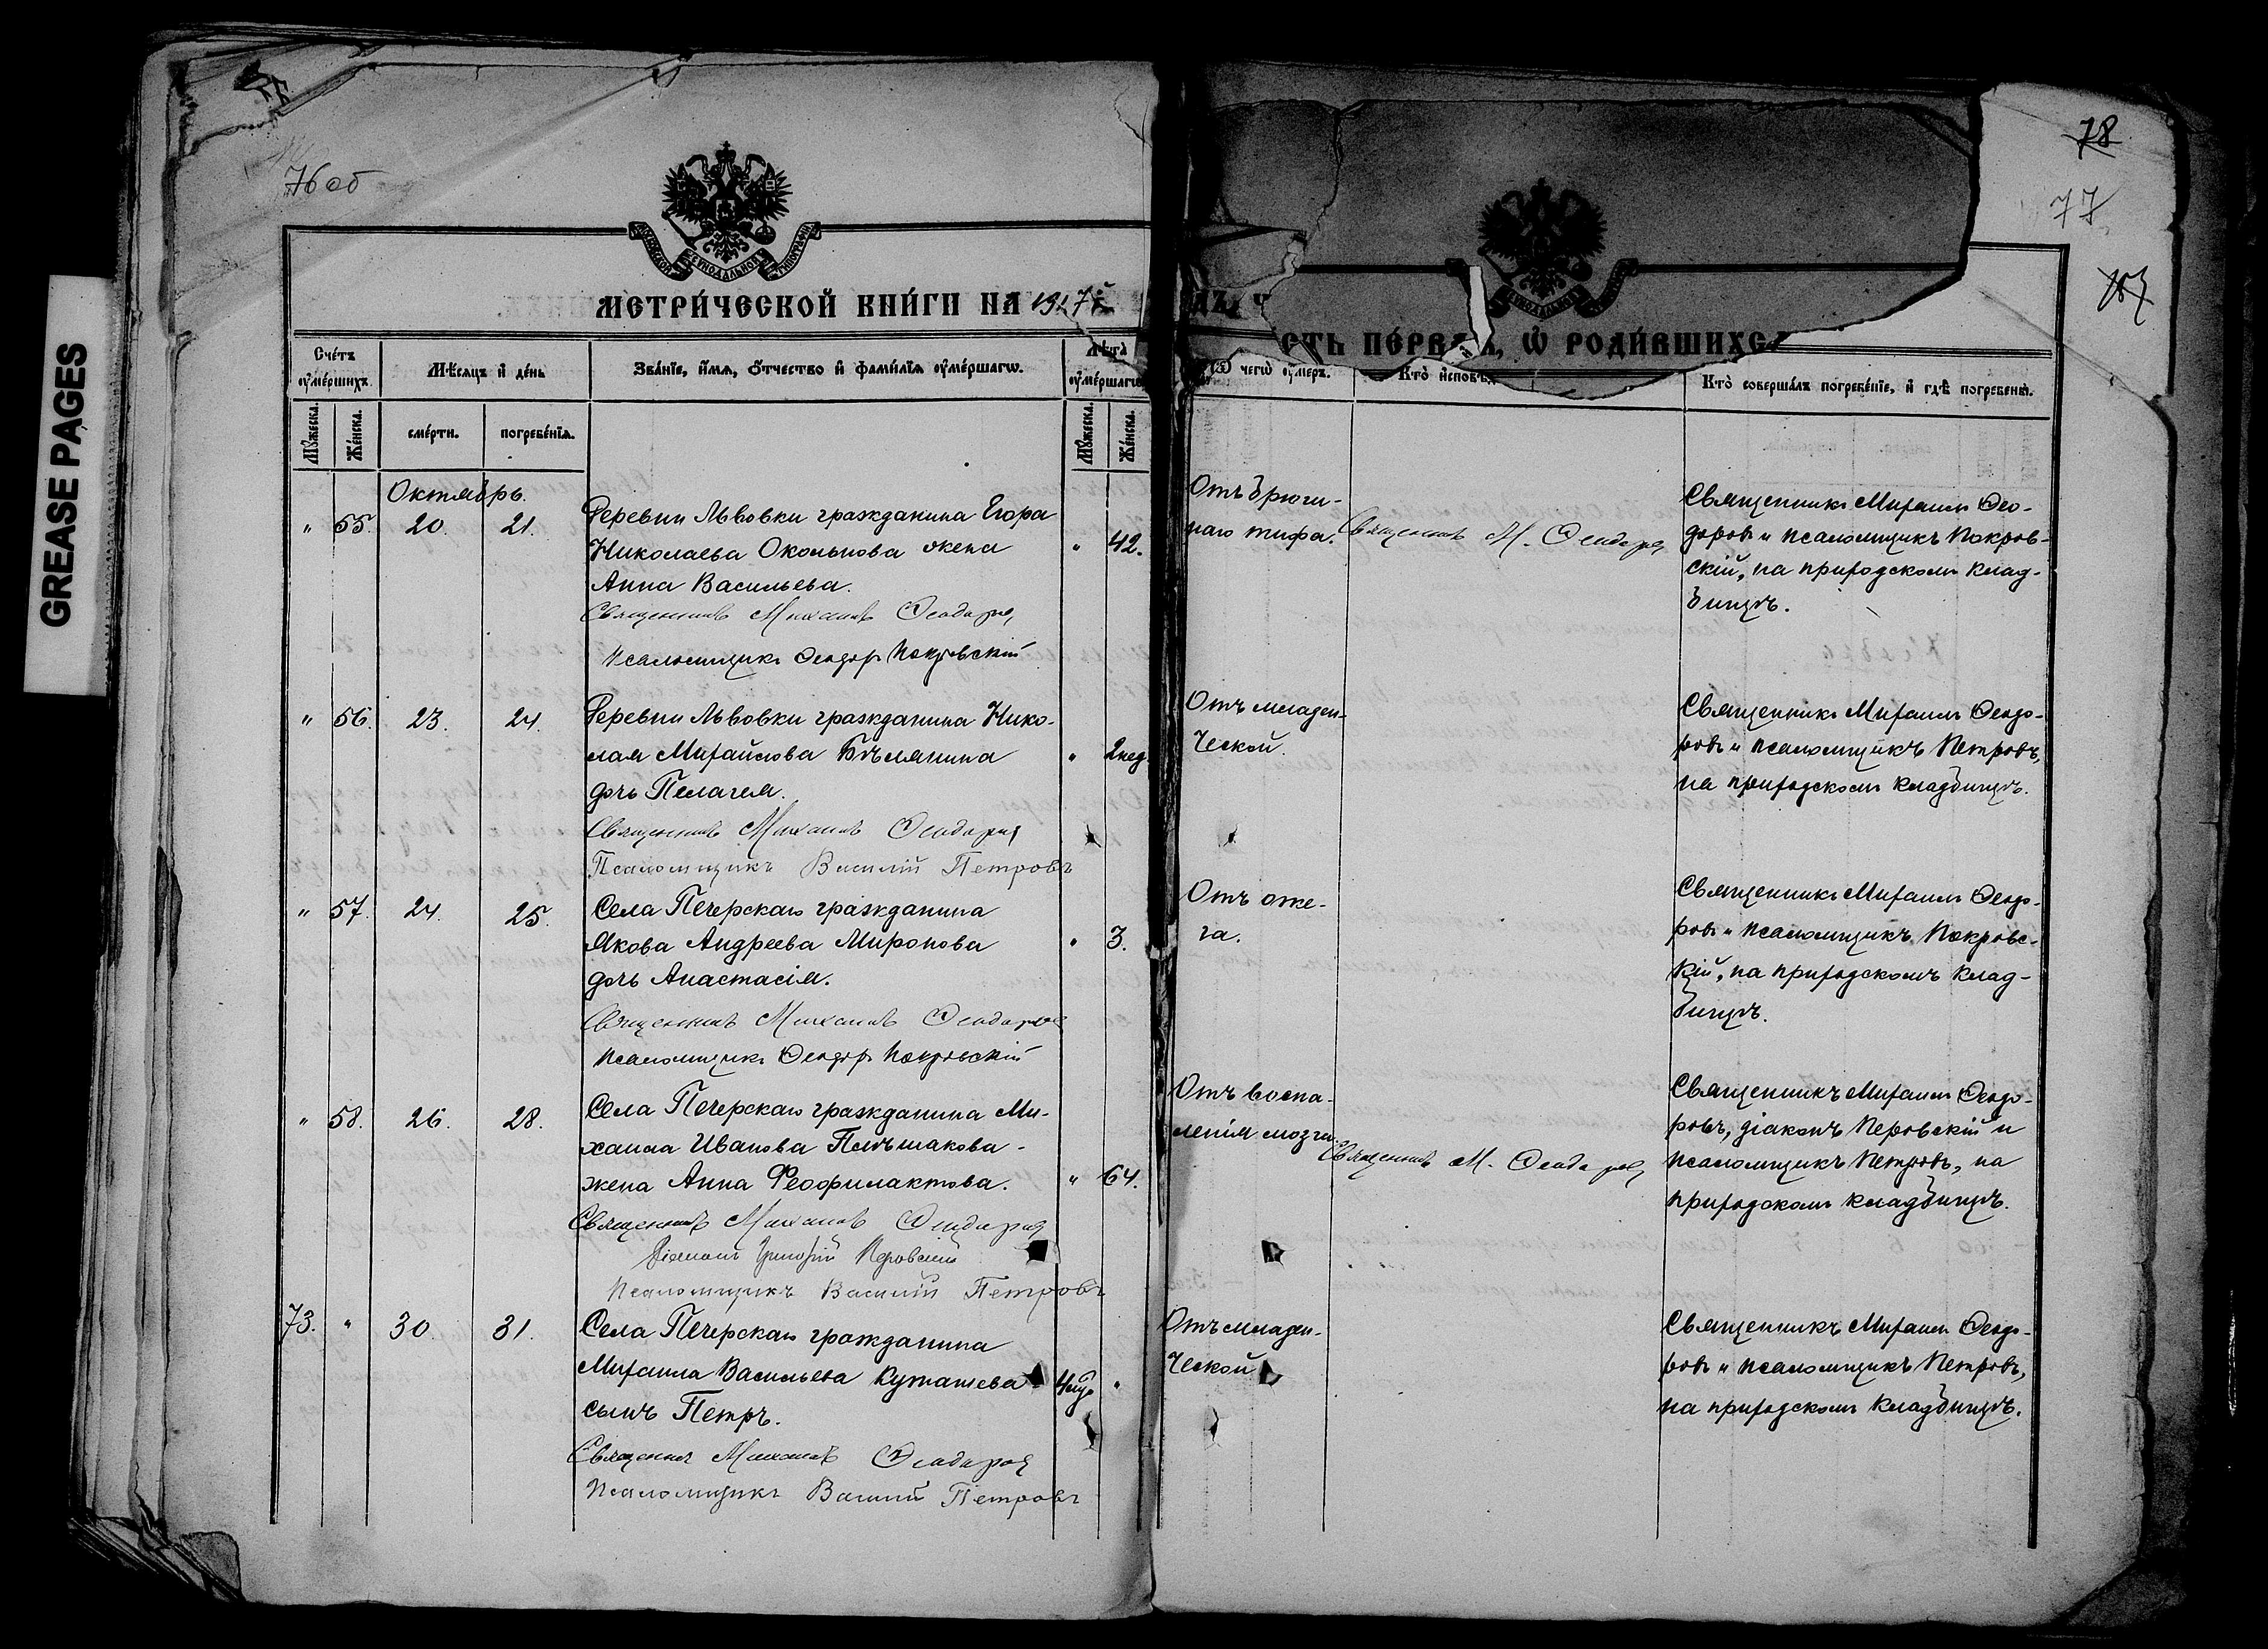 GREASE PAGES
76 об
78
77
МЕТРИ́ЧЕСКОЙ КНИ́ГИ НА 1917 й
СТЬ ПЕ́РВАЯ, Ѡ РОДИ́ВШИХСЯ
Сче́тъ ᲂумершихъ.
Мѣ́сяцъ и де́нь
Зва́нїе, и́мя, ѻ҆́тчество и҆ фами́лїя ᲂуме́ршагѡ.
Лѣта̀ ᲂуме́ршагѡ
чегѡ̀ ᲂу́меръ.
Кто̀ и҆сповѣ
Кто̀ соверша́лъ погребе́нїе, и҆ гдѣ̀ погребены̀.
Мꙋ́жеска.
Же́нска.
сме́рти.
погребе́нїѧ.
Мꙋ́жеска.
Же́нска.
Октябрь.
" 55. 20. 21. Деревни Львовки гражданина Егора
Николаева Окольнова жена " 42.
Анна Васильева.
Священникъ Михаилъ Ѳеодоровъ
Псаломщикъ Ѳеодоръ Покровскій
Отъ брюш-
наго тифа. Священникъ М. Ѳеодоровъ
Священникъ Михаилъ Ѳео-
доровъ и псаломщикъ Покров-
скій, на приходскомъ клад-
бищѣ.
" 56. 23. 24. Деревни Львовки гражданина Нико-
лая Михайлова Бѣлянина " 2 нед.
дочь Пелагея.
Священникъ Михаилъ Ѳеодоровъ
Псаломщикъ Василій Петровъ
Отъ младен-
ческой.
Священникъ Михаилъ Ѳеодо-
ровъ и псаломщикъ Петровъ,
на приходскомъ кладбищѣ.
" 57. 24. 25. Села Печерскаго гражданина
Якова Андреева Миронова " 3.
дочь Анастасія.
Священникъ Михаилъ Ѳеодоровъ
Псаломщикъ Ѳеодоръ Покровскій
Отъ ожо-
га.
Священникъ Михаилъ Ѳеодо-
ровъ и псаломщикъ Покровс-
кій, на приходскомъ клад-
бищѣ.
" 58. 26. 28. Села Печерскаго гражданина Ми-
хаила Иванова
жена Анна Феофилактова. " 64.
Священникъ Михаилъ Ѳеодоровъ
Діаконъ Григорій Перовскій
Псаломщикъ Василій Петровъ
Отъ воспа-
ленія мозга. Священникъ М. Ѳеодоровъ
Священникъ Михаилъ Ѳеодо-
ровъ, діаконъ Перовскій и
псаломщикъ Петровъ, на
приходскомъ кладбищѣ.
73. " 30. 31. Села Печерскаго гражданина
Михаила Васильева Куташева "
сынъ Петръ.
Священникъ Михаилъ Ѳеодоровъ
Псаломщикъ Василій Петровъ
Отъ младен-
ческой
Священникъ Михаилъ Ѳеодо-
ровъ и псаломщикъ Петровъ,
на приходскомъ кладбищѣ.